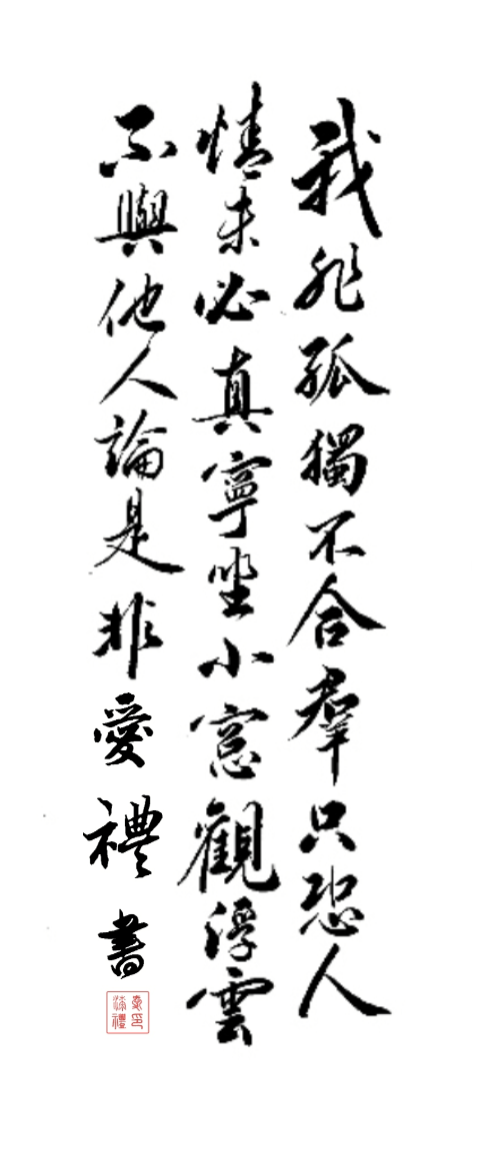 我非孤獨不合群只恐人
情未必真寧坐小窓觀浮雲
不與他人論是非愛禮書